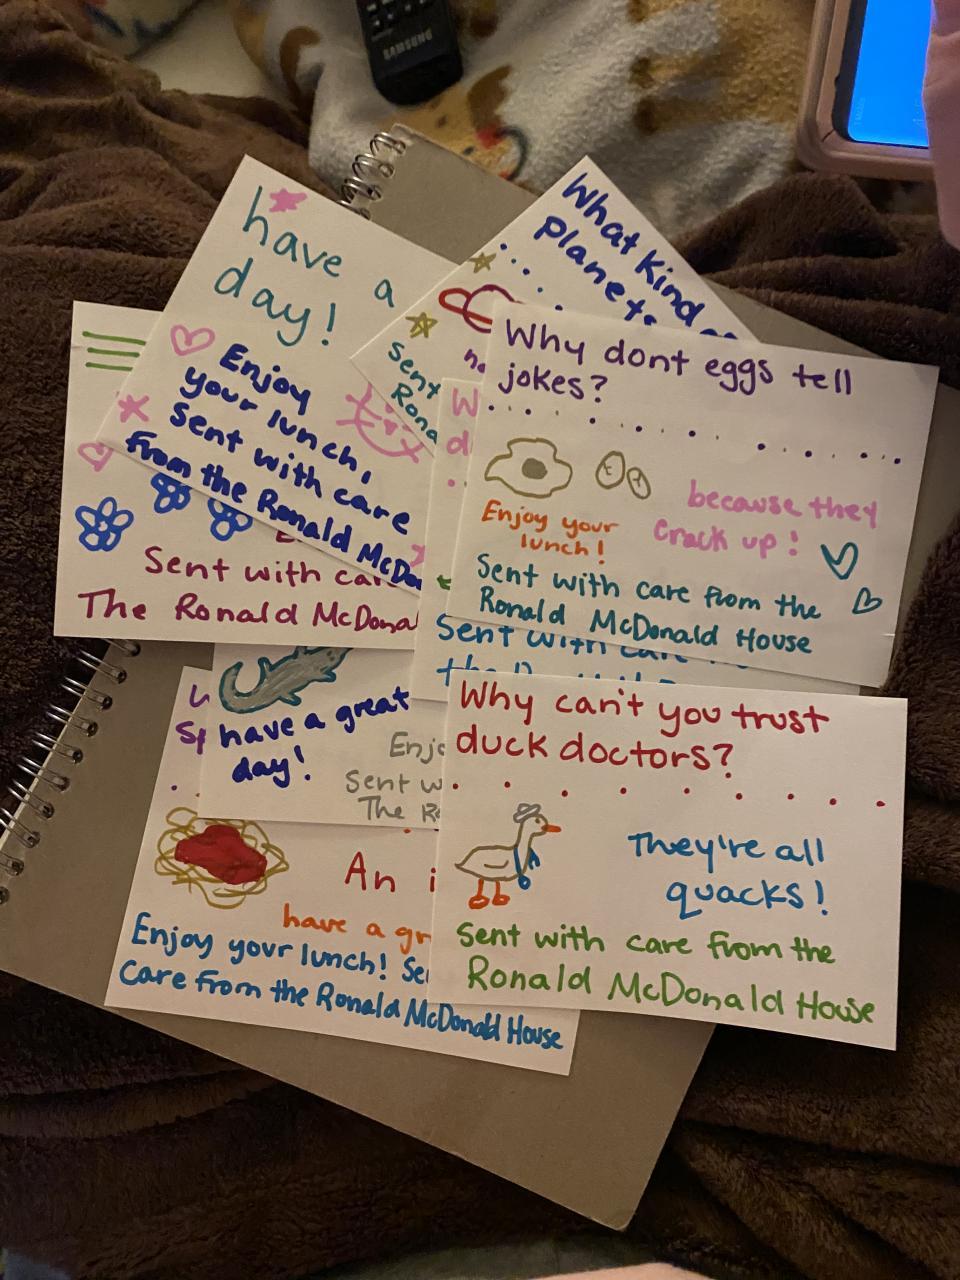 SAMSUNG
have a
day!
Enjoy
your lunch,
Sent with care
from the Ronald
What Kind
planets
Sent
Rona
Why dont eggs tell
jokes?
because they
crack up!
Enjoy your
lunch!
Sent with care from the
Ronald McDonald House
W
d
Sent with care
Sent with
The Ronald McDona
have a great
day!
Sent w
The R
Why can't you trust
duck doctors?
They're all
quacks!
Sent with care from the
Ronald McDonald House
An i
have a gr
Enjoy your lunch! Se
Care from the Ronald McDonald House